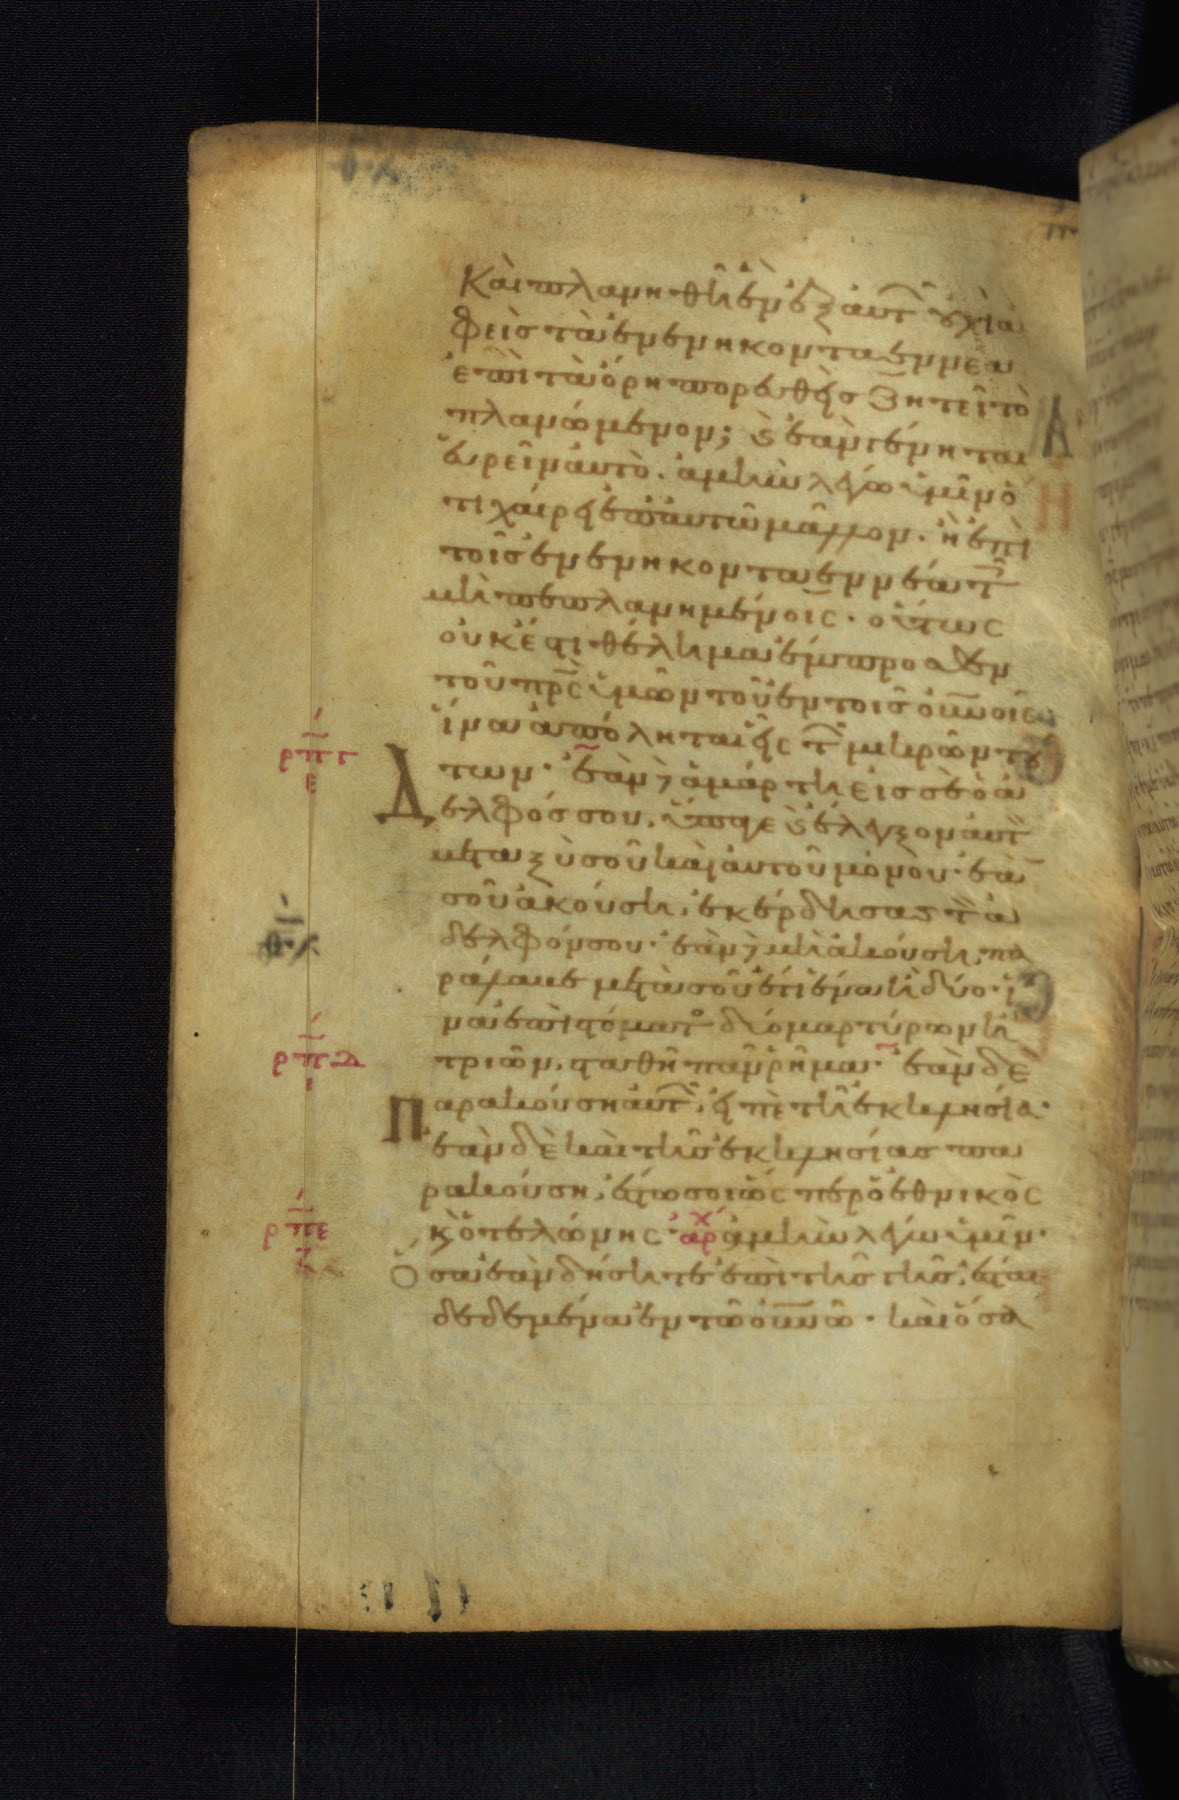 Καὶ πλανηθῆ ἓν ἐξ αὐτ οὐχὶ ἀ
φεὶς τὰ ἐνενηκοντα ἐννέα
ἐπὶ τὰ ὄρη πορευθεὶς ζητεῖ τὸ
πλανώμενον; καὶ ἐὰν γένηται
εὑρεῖν αὐτὸ. ἀμὴν λέγω ὑμῖν ὅ
τι χαίρει ἐπ αὐτῶ μᾶλλον. ἢ ἐπὶ
τοῖς ἐνενηκοντα ἐννέα τ
μὴ πεπλανημένοις. οὕτως
οὐκ ἔστι θέλημα ἔμπροσθεν
τοῦ πρς ὑμῶν τοῦ ἐν τοῖς οὐνοῖς
ἵνα ἀπόληται εἷς τ μικρῶν του
των. ἐὰν ἁμάρτη εἰς σὲ ὁ ἀ
δελφός σου, ὕπαγε καὶ ἔλεγξον αὐτ
μεταξὺ σοῦ καὶ αὐτοῦ μόνου. ἐά
σοῦ ἀκούση, ἐκέρδησας τ ἀ
δελφόν σου. ἐὰν μὴ ἀκούση, πα
ράλαβε μετὰ σοῦ ἔτι ἕνα ἢ δύο. ἵ
να ἐπὶ στόματο δύο μαρτύρων ἢ
τριῶν, σταθῆ πᾶν ῥῆμα. ἐὰν δὲ
παρακούση αὐτ, εἰπὲ τῆ ἐκκλησία.
ἐὰν δὲ καὶ τῆς ἐκκλησίας πα
ρακούση, ἔστω σοι ὡς περ ὁ ἐθνικὸς
καὶ ὁ τελώνης. αρχ ἀμὴν λέγω ὑμῖν.
ὅσα ἐὰν δήσητε ἐπὶ τῆς γῆς, ἔσται
δεδεμένα ἐν τῶ οὐνῶ. καὶ ὅσα
ρπγ
ε
ρπδ
ι
ρπε
ζ